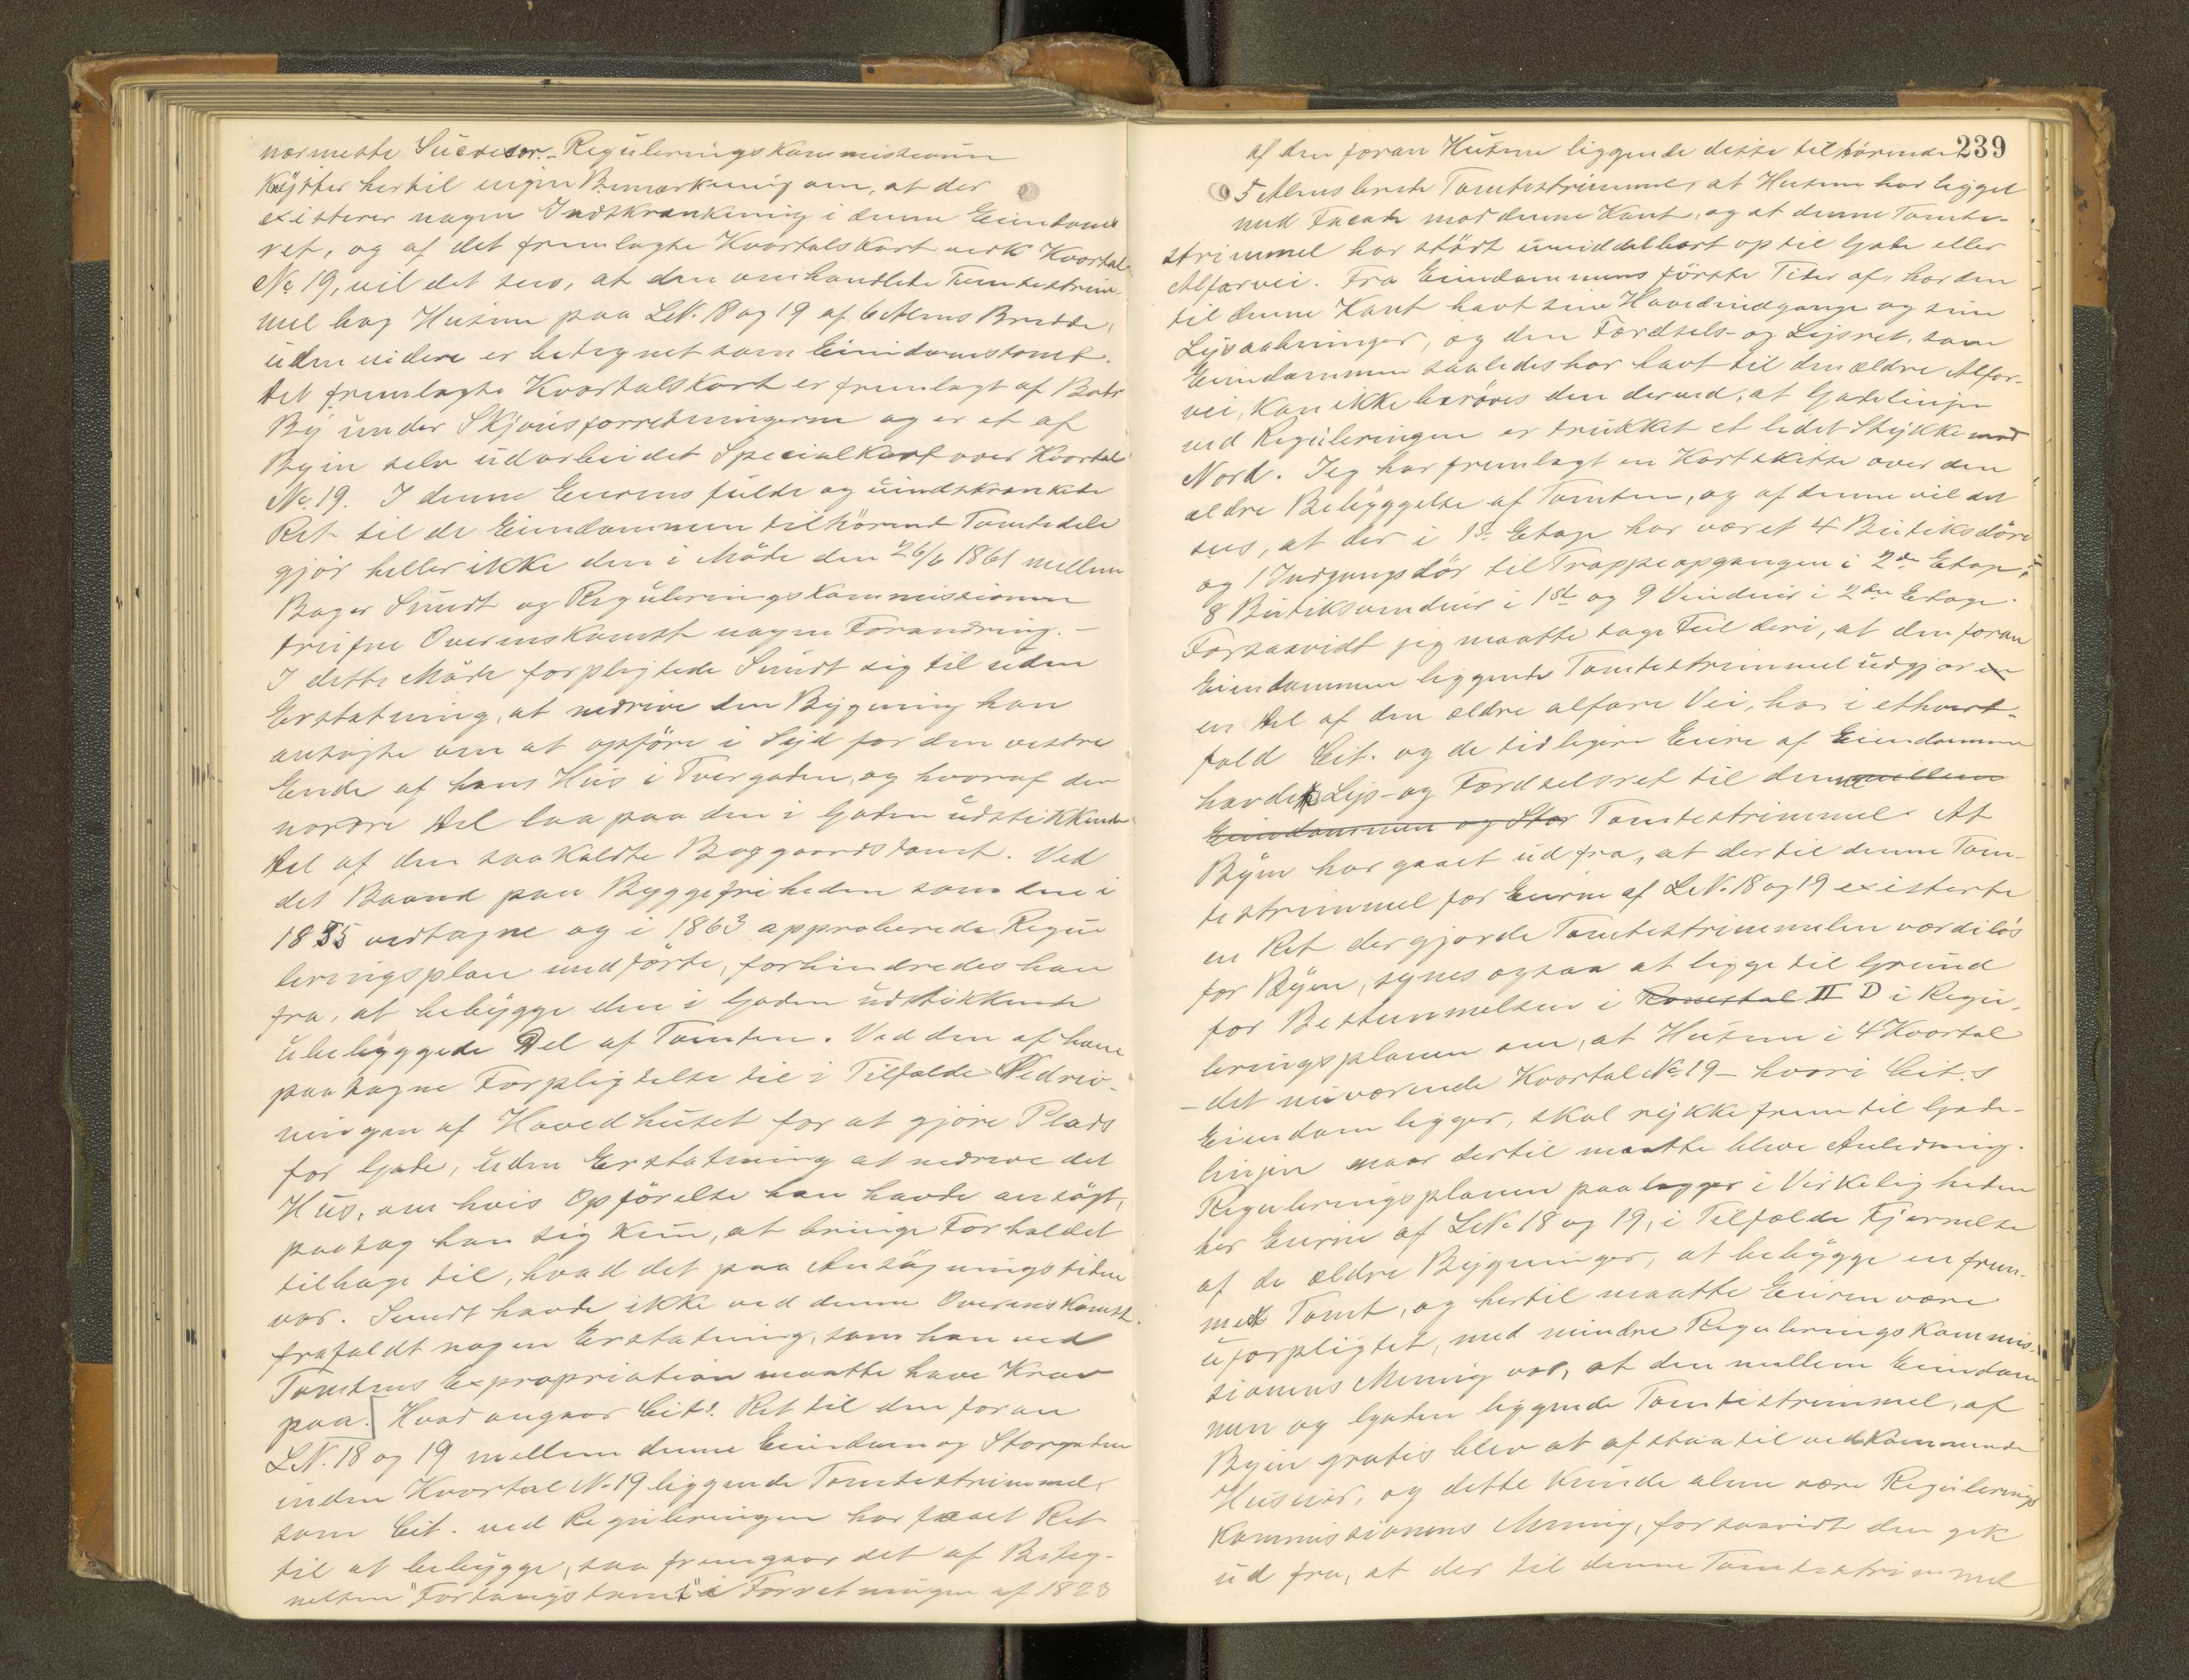 nærmeste Sucdesor. Reguleringskommissionen
knytter hertil ingen Bemærkning om, at der
existerer nogen Indskrænkning i denne Eiendoms
ret, og af det fremlagte Kvartalskart vedk Kvartal
No 19, vil det sees, at den omhandlede Tomtestrim-
mel bag Husene paa LN. 18 og 19 af 6 Alens Bredde,
uden videre er betegnet som Eiendomstomt.
Det fremlagte Kvartalskart er fremlagt af Bodø
By under Skjønsforretningerne og er et af
Byen selv udarbeidet Specialkart over Kvartal
No. 19. I denne Eierens fulde og uindskrænkede
Ret til de Eiendommen tilhørende Tomtedele
gjør heller ikke den i Møde den 26/6 1861 mellem
Bager Sundt og Reguleringskommissionen
trufne Overenskomst nogen Forandring. -
I dette Møde forpligtede Sundt sig til uden
Erstatning, at nedrive den Bygning han
ansøgte om at opføre i Syd for den vestre
Ende af hans Hus i Tvergaden, og hvoraf den
nordre Del laa paa den i Gaden udstikkende
Del af den saakaldte Baggaardstomt. Ved
det Baand paa Byggefriheden som den i
1855 vedtagne og i 1863 approberede Regu
leringsplan medførte, forhindredes han
fra, at bebygge den i Gaden udstikkende
ubebyggede Del af Tomten. Ved den af ham
paatagne Forpligtelse til i Tilfælde Nedriv-
ningen af Hovedhuset for at gjøre Plads
for Gade, uden Erstatning at nedrive det
Hus, om hvis Opførelse han havde ansøgt,
paatog han sig kun, at bringe Forholdet
tilbage til, hvad det paa Ansøgningstiden
var. Sundt havde ikke ved denne Overenskomst
frafaldt nogen Erstatning, som han ved
Tomtens Expropriation maatte have Krav
paa.] Hvad angaar Cits. Ret til den foran
LN. 18 og 19 mellem denne Eiendom og Storgaden
inden Kvartal No 19 liggende Tomtestrimmel,
som Cit. ved Reguleringen har faaet Ret
til at bebygge, saa fremgaar det af Beteg-
nelsen "Fortaugstomt" i Forretningen af 1823
239
af den foran Husene liggende disse tilhørende
5 Alens brede Tomtestrimmel, at Husene har ligget
med Facade mod denne Kant, og at denne Tomte-
strimmel har stødt umiddelbart op til Gade eller
Alfarvei. Fra Eiendommens første Tider af, har den
til denne Kant havt sine Hovedindgange og sine
Lysaabninger, og den Færdsels- og Lysret, som
Eiendommen saaledes har havt til den ældre Alfar-
vei, kan ikke berøves den derved, at Gadelinjen
ved Reguleringen er trukket et lidet Stykke mod
Nord. Jeg har fremlagt en Kartskitse over den
ældre Bebyggelse af Tomten, og af denne vil det
sees, at der i 1ste Etage har været 4 Butiksdøre
og 1 Indgangsdør til Trappeopgangen i 2den Etage,
8 Butiksvinduer i 1ste og 9 Vinduer i 2den Etage.
Forsaavidt jeg maatte tage Feil deri, at den foran
Eiendommen liggende Tomtestrimmel udgjør en
en Del af den ældre alfare Vei, har i ethvert-
fald Cit. og de tidligere Eiere af Eiendommen
havde Lys- og Færdselsret til denne mellem
Eiendommen og Stor Tomtestrimmel. At
Byen har gaaet ud fra, at der til denne Tom-
testrimmel for Eieren af LN. 18 og 19 existerte
en Ret der gjorde Tomtestrimmelen værdiløs
for Byen, synes ogsaa at ligge til Grund
for Bestemmelsen i Romertal II D i Regu-
leringsplanen om, at Husene i 4 Kvartal
- det nuværende Kvartal No 19 - hvori Cit.s
Eiendom ligger, skal rykke frem til Gade-
linjen naar dertil maatte blive Anledning.
Reguleringsplanen paalægger i Virkeligheden
her Eieren af LNo 18 og 19, i Tilfælde Fjernelse
af de ældre Bygninger, at bebygge en frem-
med Tomt, og hertil maatte Eieren være
uforpligtet, med mindre Reguleringskommis-
sionens Mening var, at den mellem Eiendom
men og Gaden liggende Tomtestrimmel, af
Byen gratis blev at afstaa til vedkommende
Huseier, og dette kunde alene være Regulerings
kommissionens Mening, forsaavidt den gik
ud fra, at der til denne Tomtestrimmel